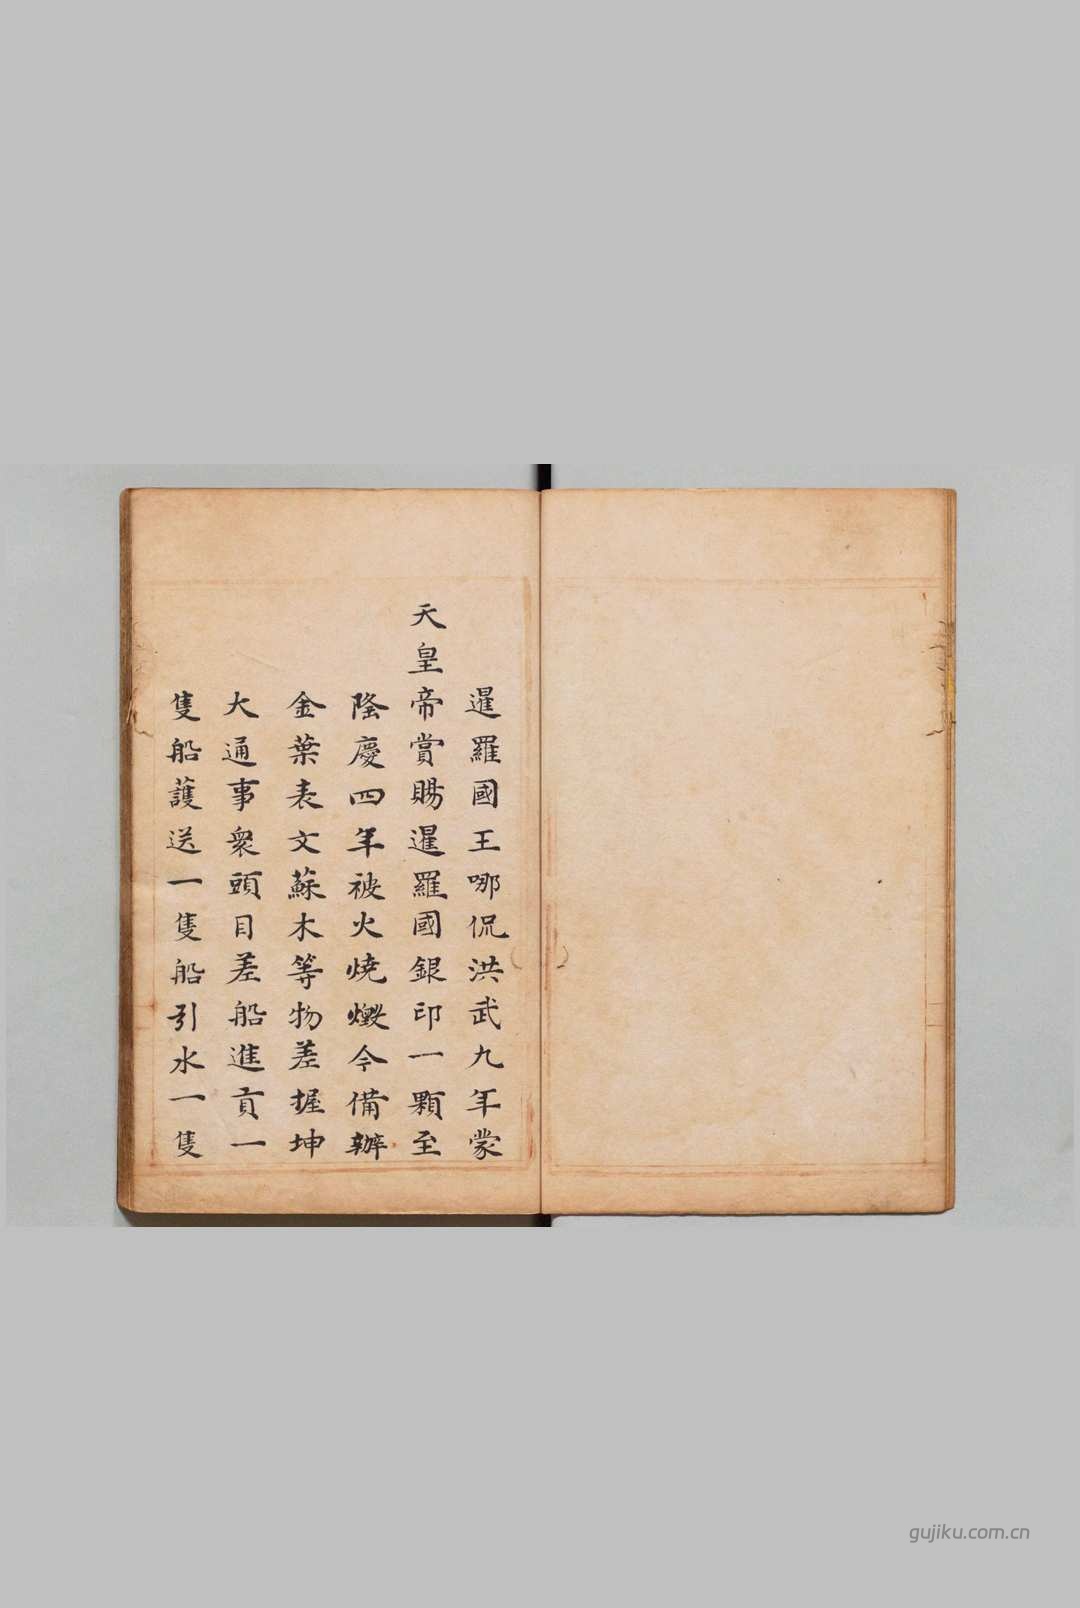 暹羅國王哪侃洪武九年蒙
天皇帝賞賜暹羅國銀印一顆至
隆慶四年被火燒燬今備辦
金葉表文蘇木等物差握坤
大通事衆頭目差船進貢一
隻船護送一隻船引水一隻
gujiku.com.cn